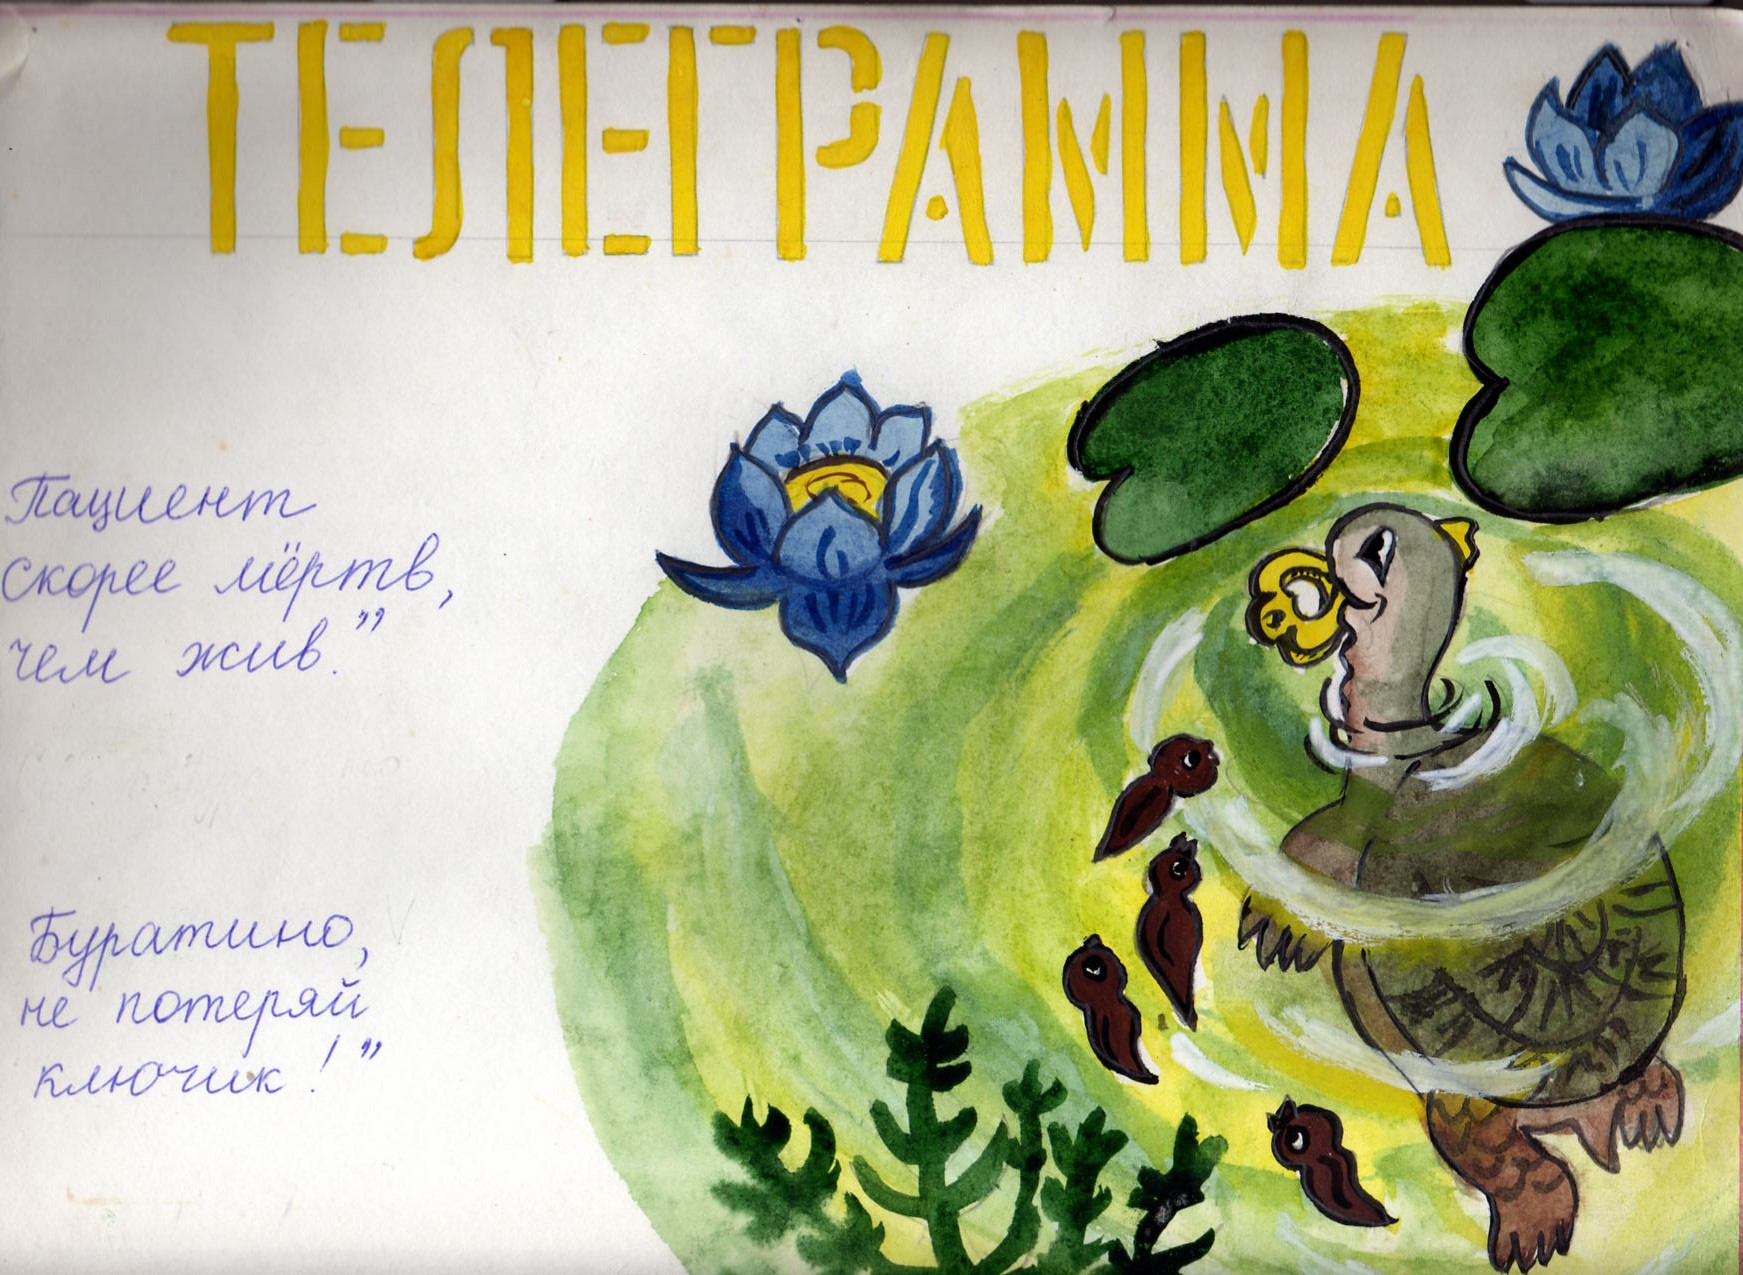 ТЕЛЕГРАММА
Пациент
скорее мёртв,
чем жив."
Буратино,
не потеряй
ключик!"